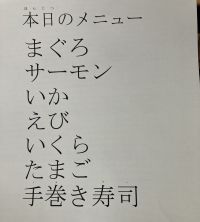 本日のメニュー
まぐろ
サーモン
いか
えび
いくら
たまご
手巻き寿司